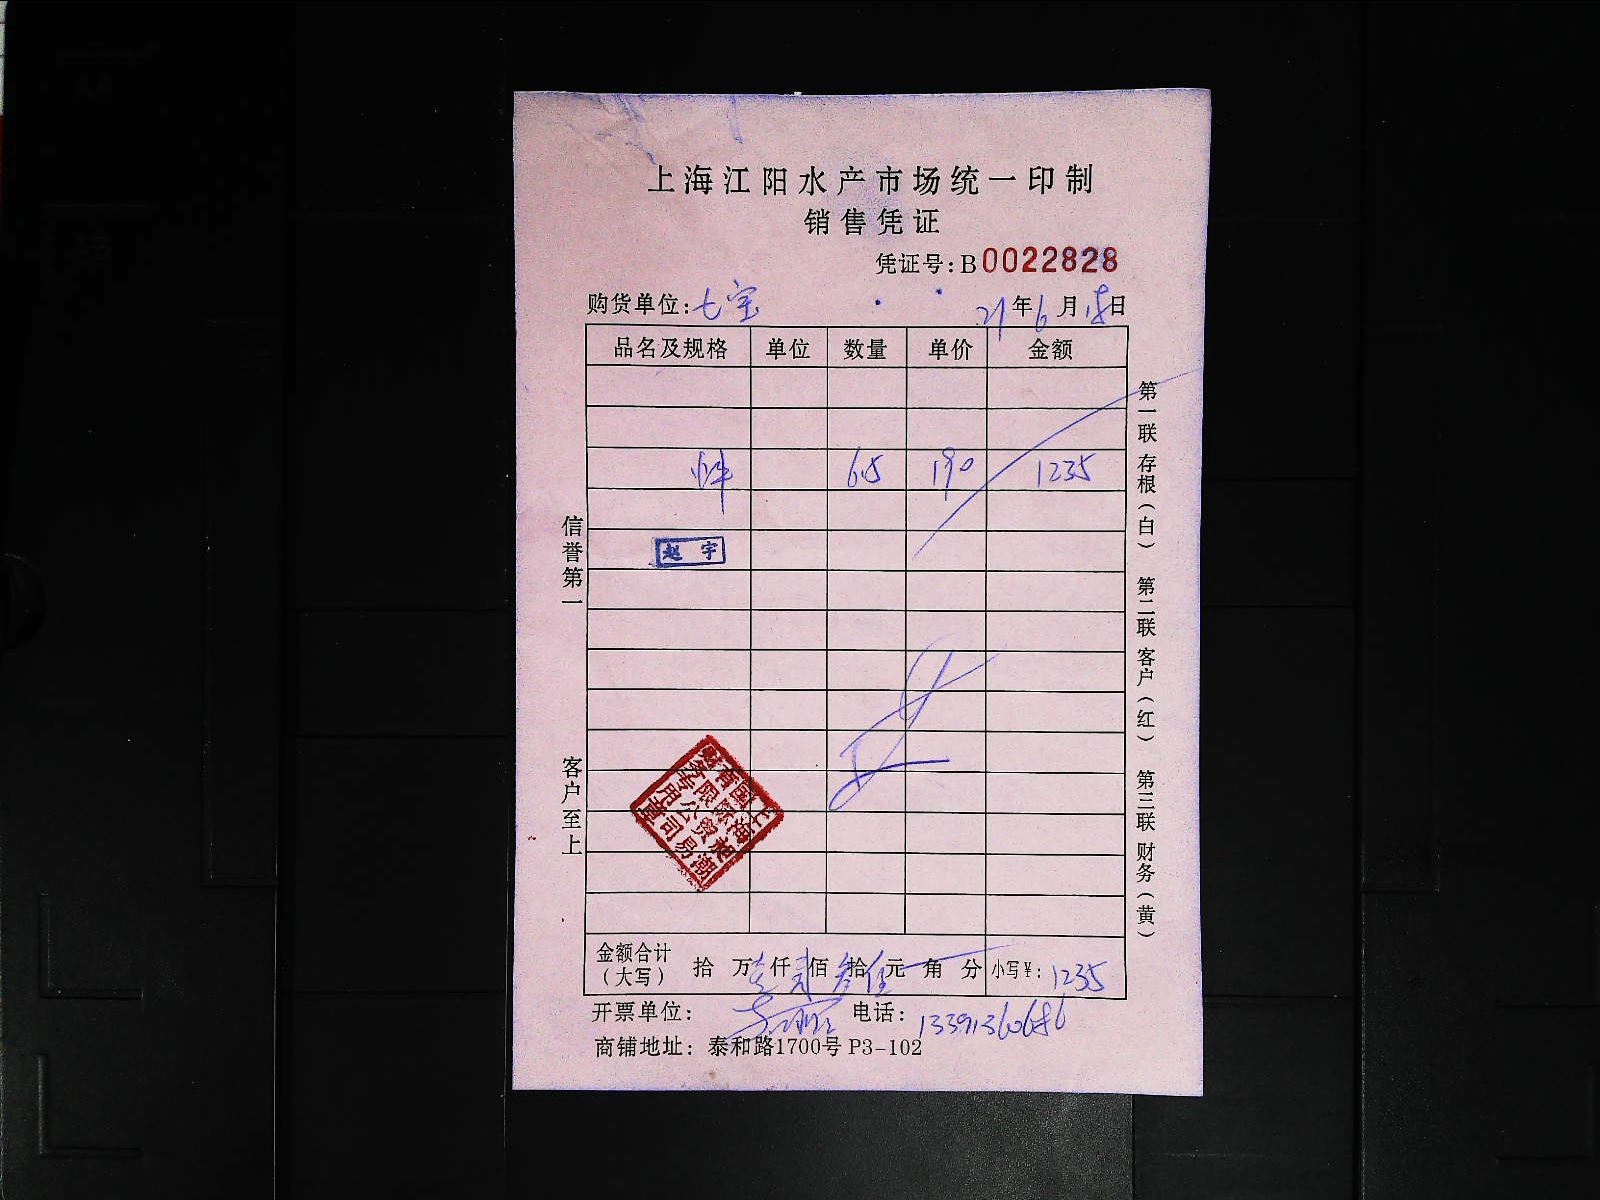 上海江阳水产市场统一印制
销售凭证
凭证号:B0022828
购货单位:七宝 21年6月18日
品名及规格 单位 数量 单价 金额
6.5 190 1235
赵宇
信誉第一
客户至上
第一联 存根(白) 第二联 客户(红) 第三联 财务(黄)
上海昶潮
国际贸易
有限公司
业务专用章
金额合计(大写) 拾 万壹仟贰佰叁拾伍元 角 分 小写¥:1235
开票单位: 电话:13391360686
商铺地址:泰和路1700号 P3-102